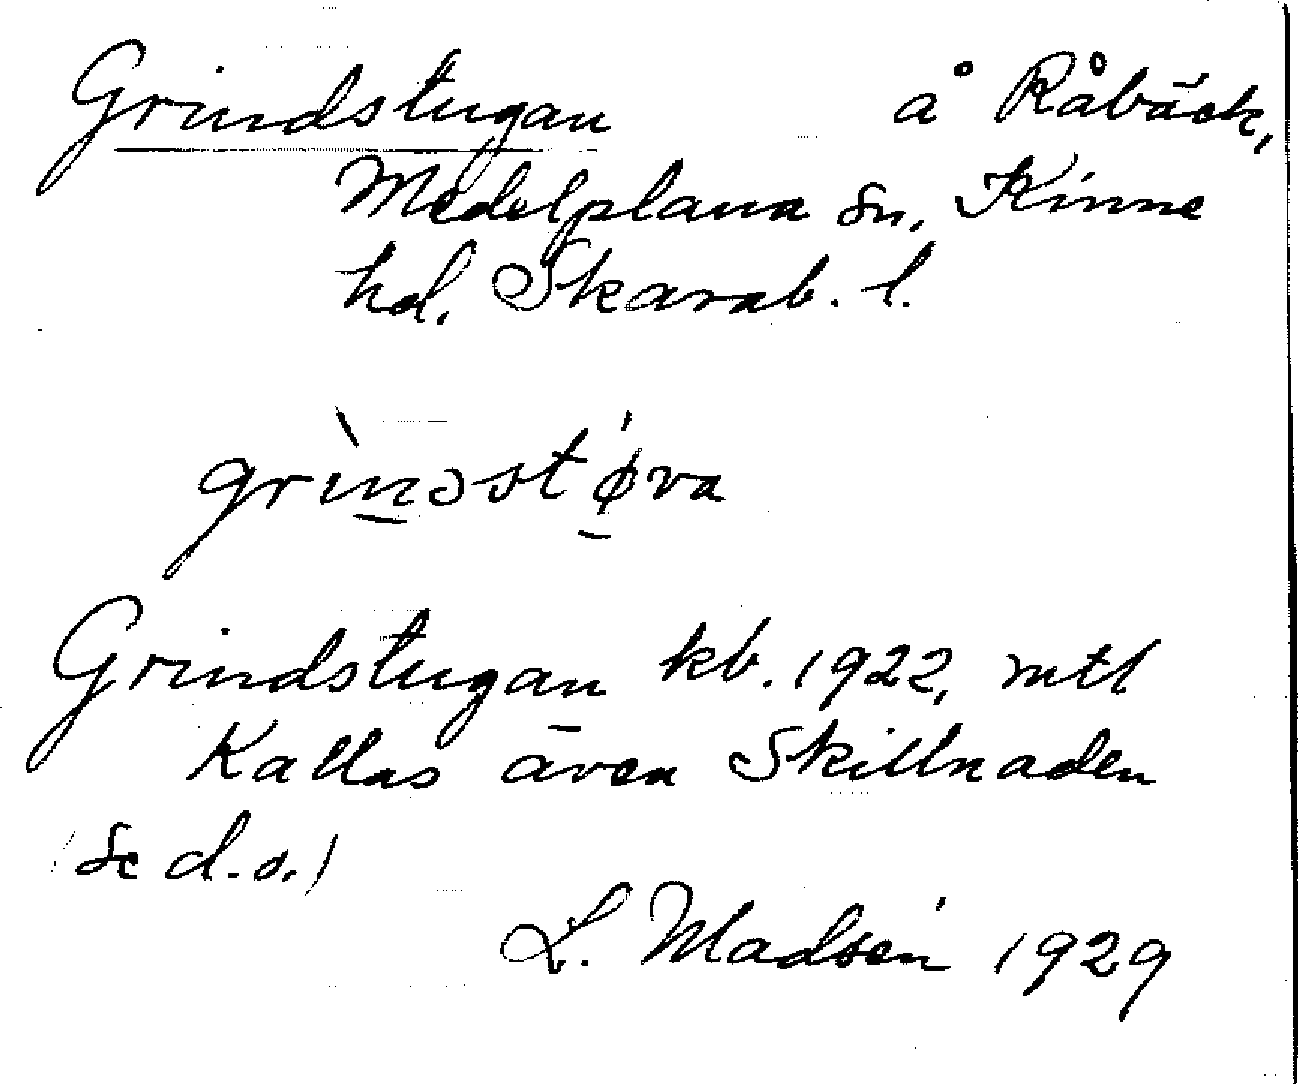 Grindstugan å Råbäck,
Medelplana sn, Kinne
hd, Skarab. l.
grìnəstǿva
Grindstugan kb. 1922, mtl
Kallas även Skillnaden
(se d.o.)
L. Madsén 1929